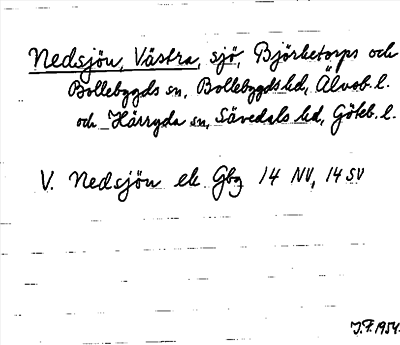 Nedsjön, Västra, sjö, Björketorps och
Bollebygds sn, Bollebygds hd, Älvsb. l.
och Härryda sn, Sävedals hd, Göteb. l.
V. Nedsjön ek. Gbg 14 NV, 14 SV
J.F. 1954.